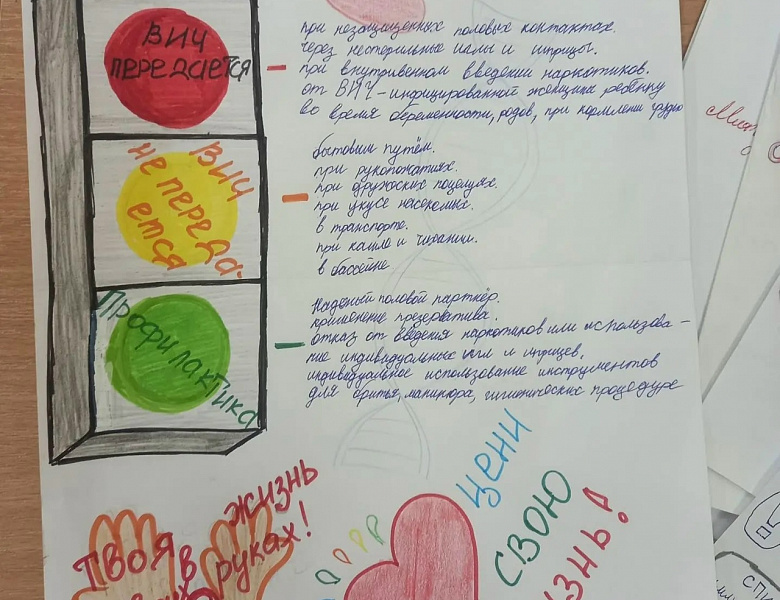 ВИЧ
ПЕРЕДАЕТСЯ
при незащищенных половых контактах.
через нестерильные иглы и шприцы.
при внутривенном введении наркотиков.
от ВИЧ-инфицированной женщины ребёнку
во время беременности, родов, при кормлении грудью
ВИЧ
не переда-
ется
бытовым путём.
при рукопожатиях.
при дружеских поцелуях.
при укусе насекомых.
в транспорте.
при кашле и чихании.
в бассейне
Профилактика
Надёный половой партнёр.
применение презерватива.
отказ от введения наркотиков или использова-
ние индивидуальных игл и шприцев,
индивидуальное использование инструментов
для бритья, маникюра, гигиенических процедуре
ТВОЯ
ЖИЗНЬ
в
руках!
ЦЕНИ
СВОЮ